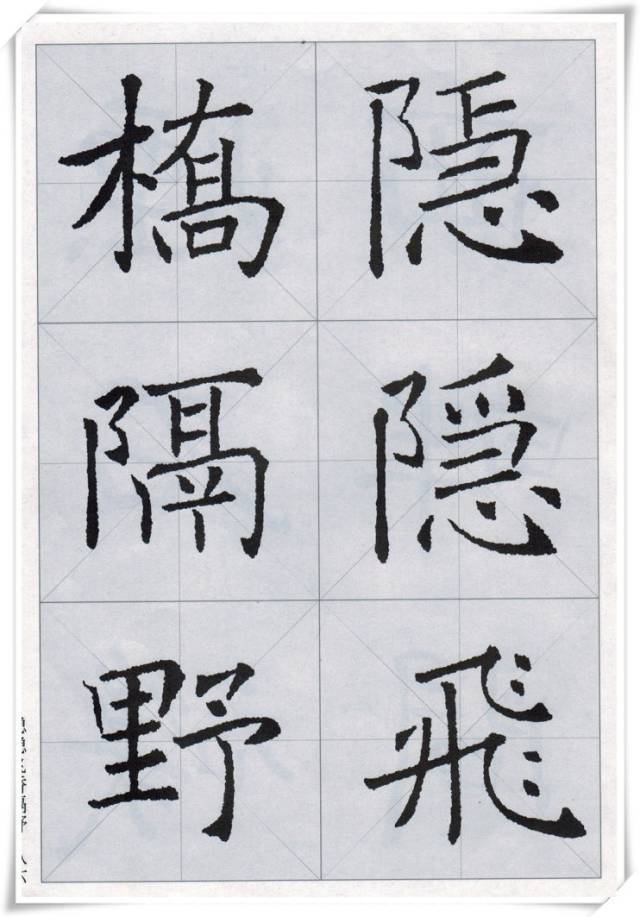 隐隱飛
橋隔野